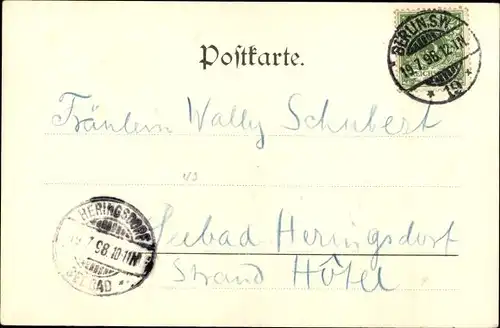 BERLIN S.W.
19.7.98.12-1N.
* 19 *
Postkarte.
Fräulein Wally Schubert
Seebad Heringsdorf
Strand Hôtel
HERINGSDORF
19.7.98.10-11N
SEEBAD